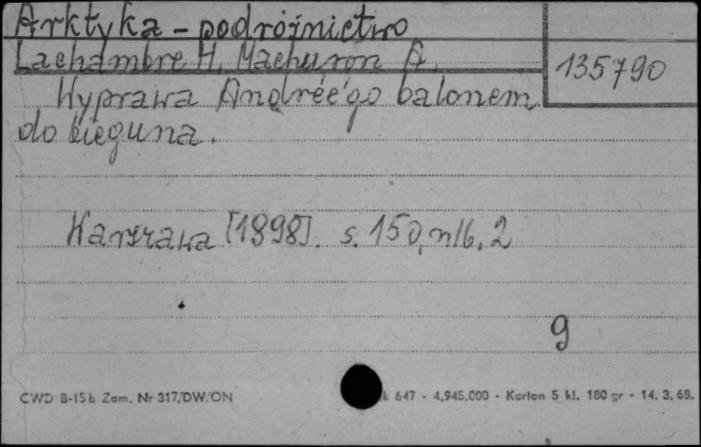 Arktyka - podróżnictwo
Lachambre H, Machuron A.
135790
Wyprawa Andrée'go balonem
do bieguna.
Warszawa [1898]. s. 150, nlb. 2
9
CWD B-15b Zam. Nr 317/DW/ON
k 647 - 4.945.000 - Karton 5 kl. 180 gr - 14. 3. 69.